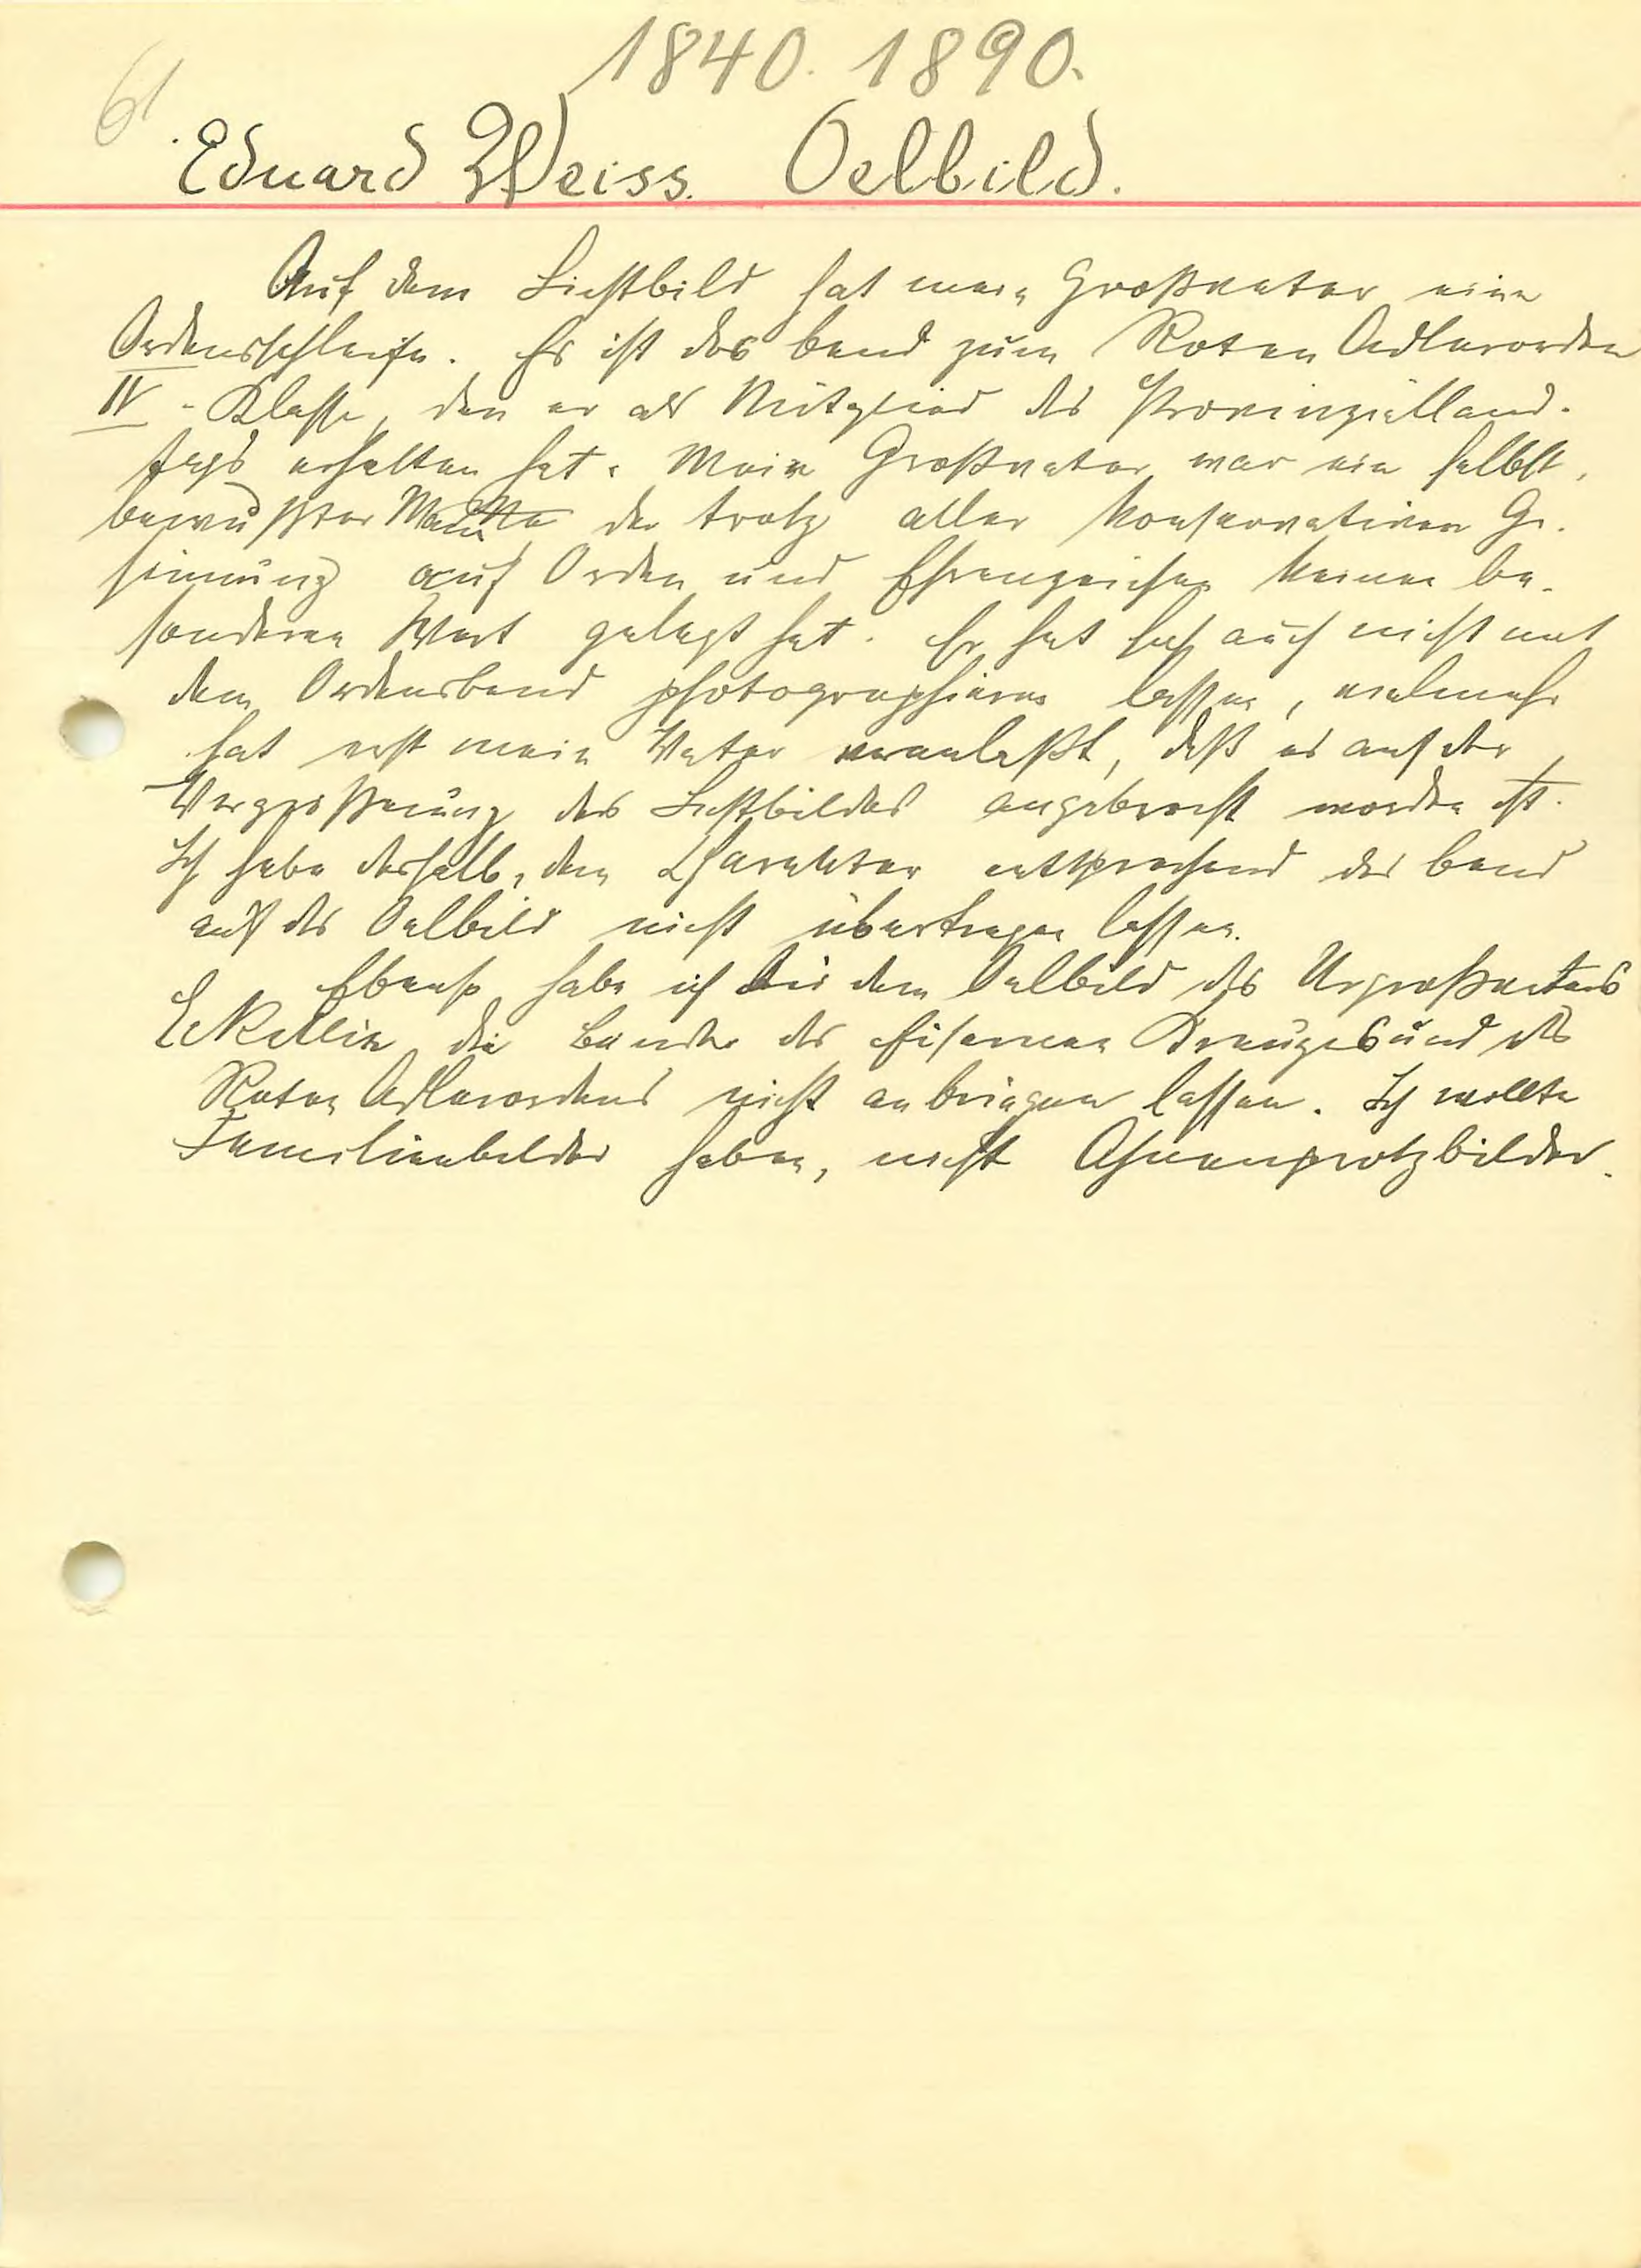 1840. 1890.
61.
Eduard Weiss. Oelbild.
Auf dem Lichtbild hat mein Großvater eine
Ordensschleife. Es ist das Band zum Roten Adlerorden
IV - Klasse, den er als Mitglied des Provinzialland-
tags erhalten hat. Mein Großvater war ein selbst-
bewußter Mann der trotz aller konservativen Ge-
sinnung auf Orden und Ehrenzeichen keinen be-
sonderen Wert gelegt hat. Er hat sich auch nicht mit
dem Ordensband photographieren lassen, vielmehr
hat erst mein Vater veranlaßt, daß es auf der
Vergrößerung des Lichtbildes angebracht worden ist.
Ich habe deshalb, dem Charakter entsprechend das Band
auf das Oelbild nicht übertragen lassen.
Ebenso habe ich bei dem Oelbild des Urgroßvaters
die Bänder des Eisernen Kreuzes und des
Roten Adlerordens nicht anbringen lassen. Ich wollte
Familienbilder haben, nicht Ahnenprotzbilder.